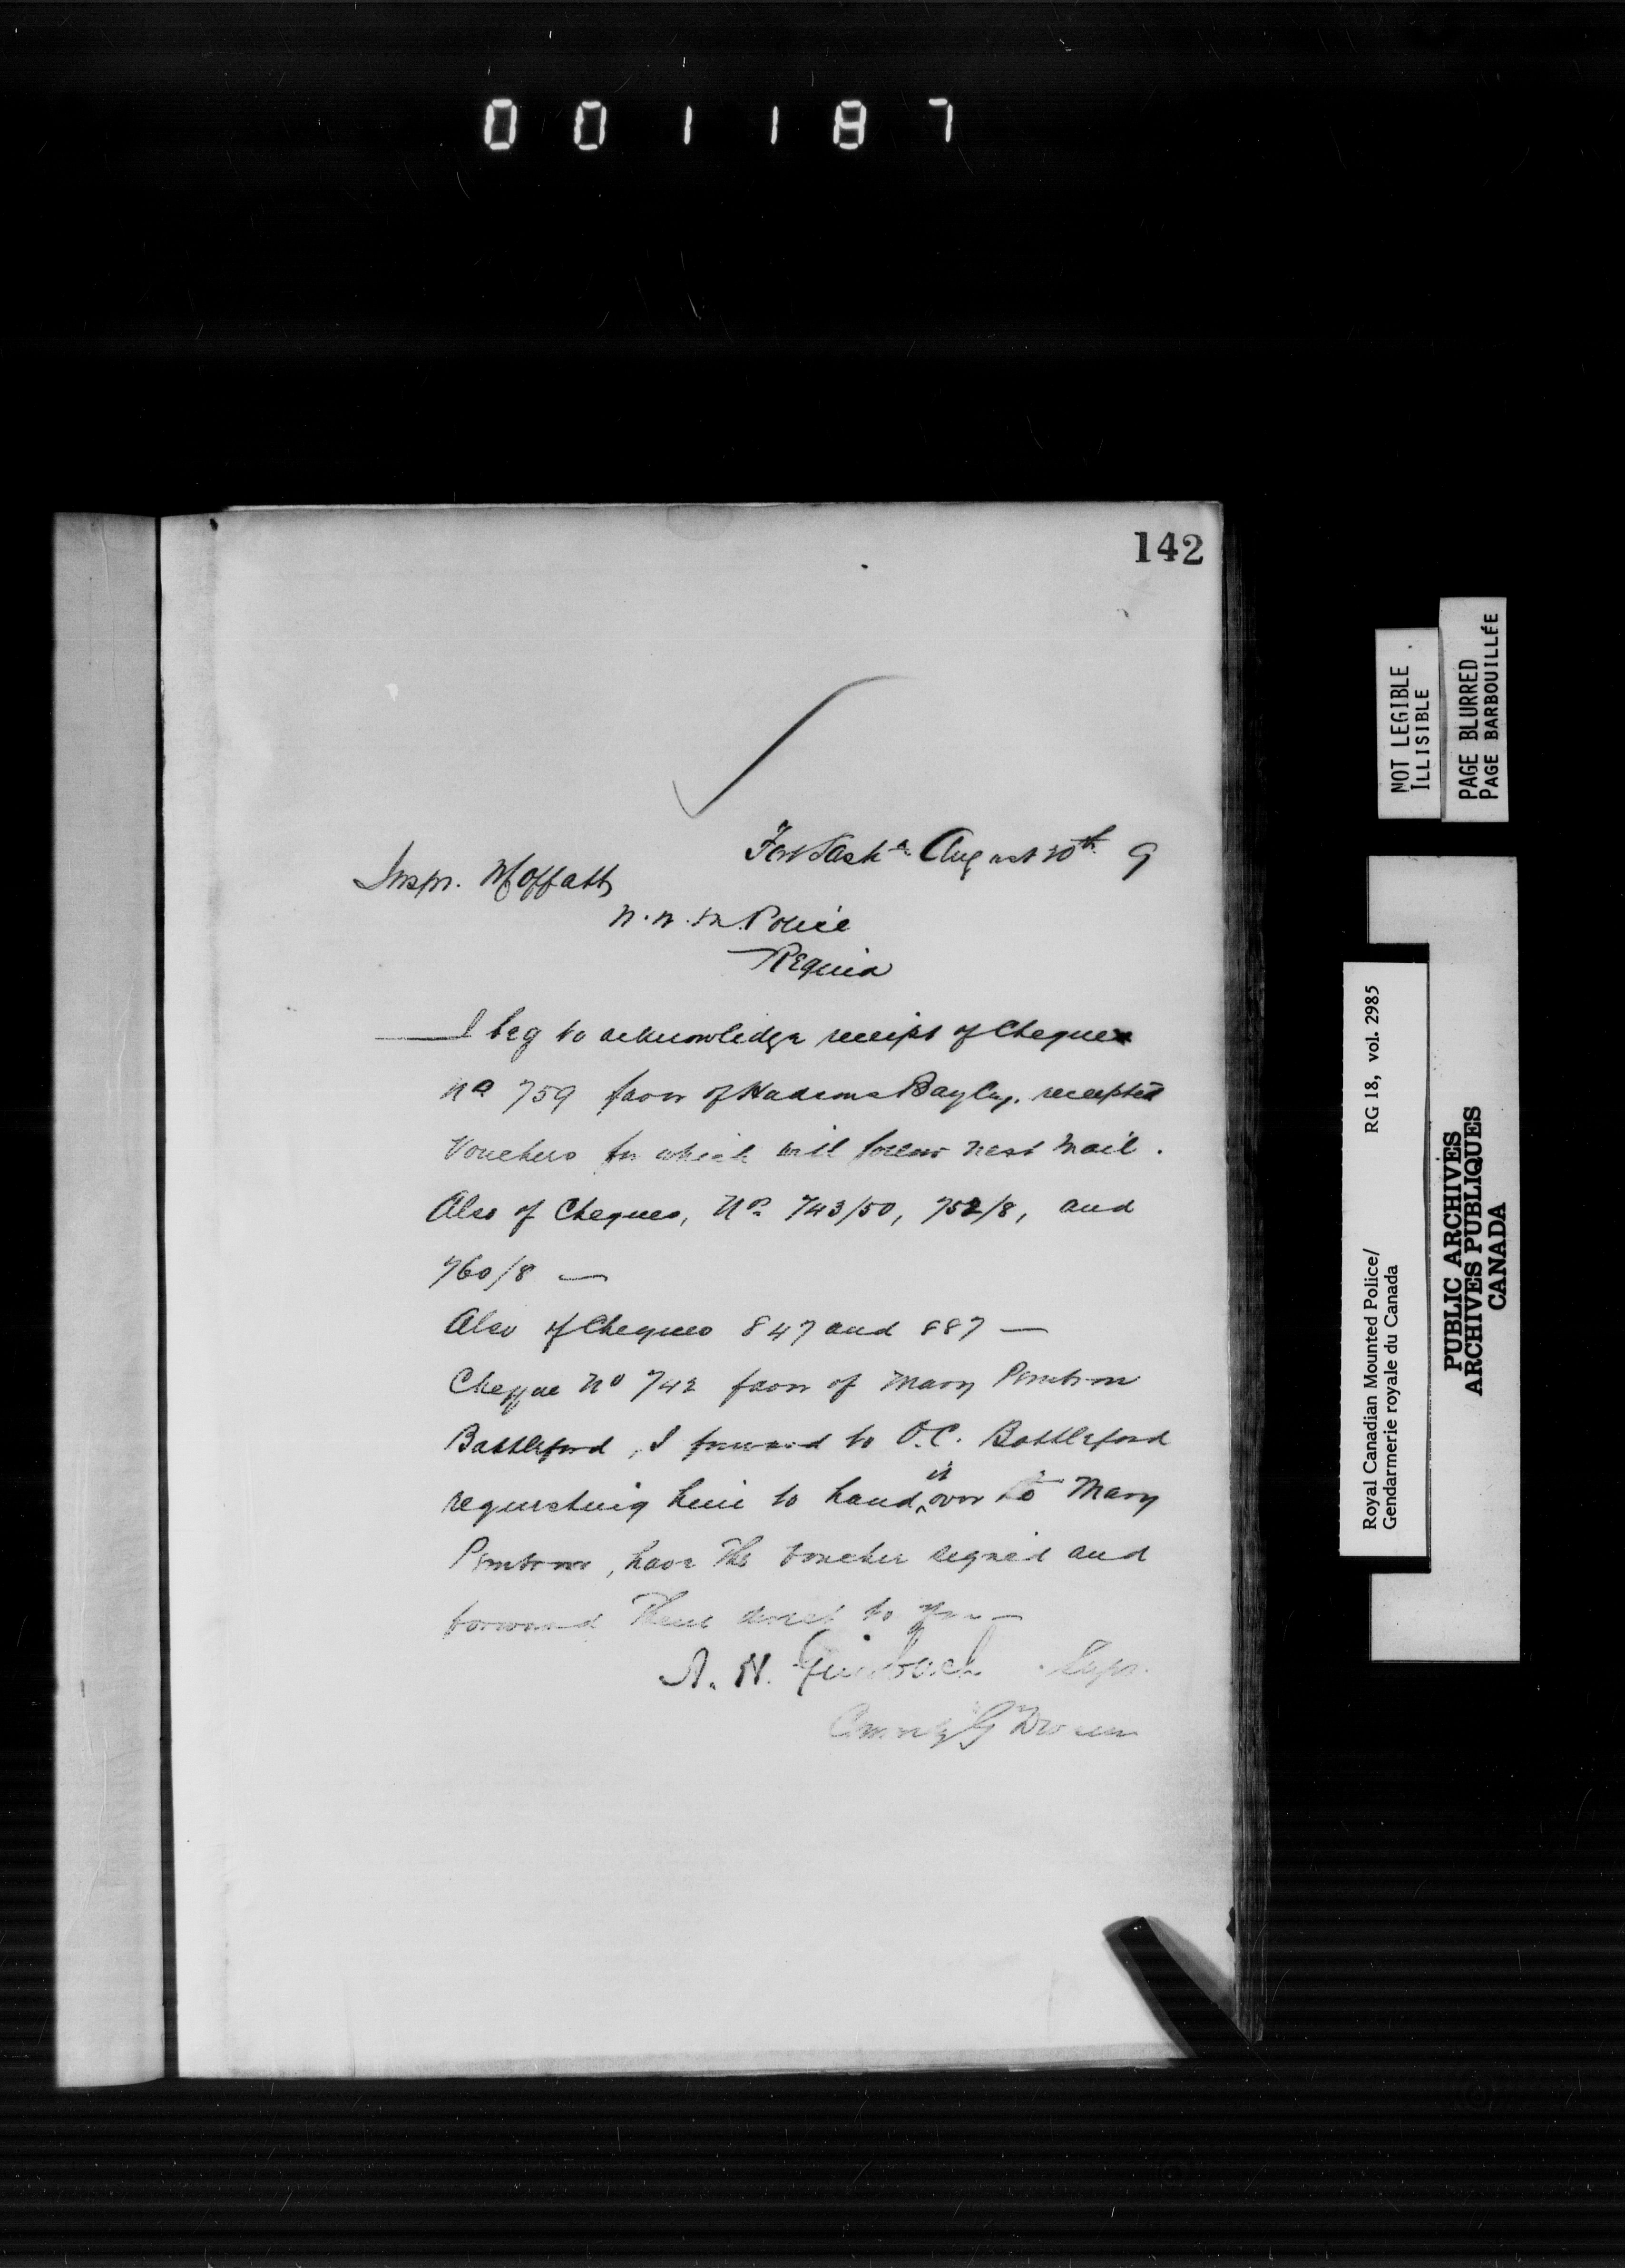 001187
142
Fort Sask'n August 20th 9
Inspr. Moffatt
N.W.M. Police
Regina
I beg to acknowledge receipt of Cheques
No 759 favor of Hudsons Bay Coy. receipted
Vouchers for which will follow next mail.
Also of Cheques, No. 743/50, 752/8, and
760/8 —
Also of Cheques 847 and 887 —
Cheque No 742 favor of Mary
Battleford, I forward to O.C. Battleford
requesting him to hand it over to Mary
, have the voucher signed and
forward them direct to you —
A. H. Griesbach Supt.
Comdg G Divisn
NOT LEGIBLE
ILLISIBLE
PAGE BLURRED
PAGE BARBOUILLÉE
Royal Canadian Mounted Police/ RG 18, vol. 2985
Gendarmerie royale du Canada
PUBLIC ARCHIVES
ARCHIVES PUBLIQUES
CANADA